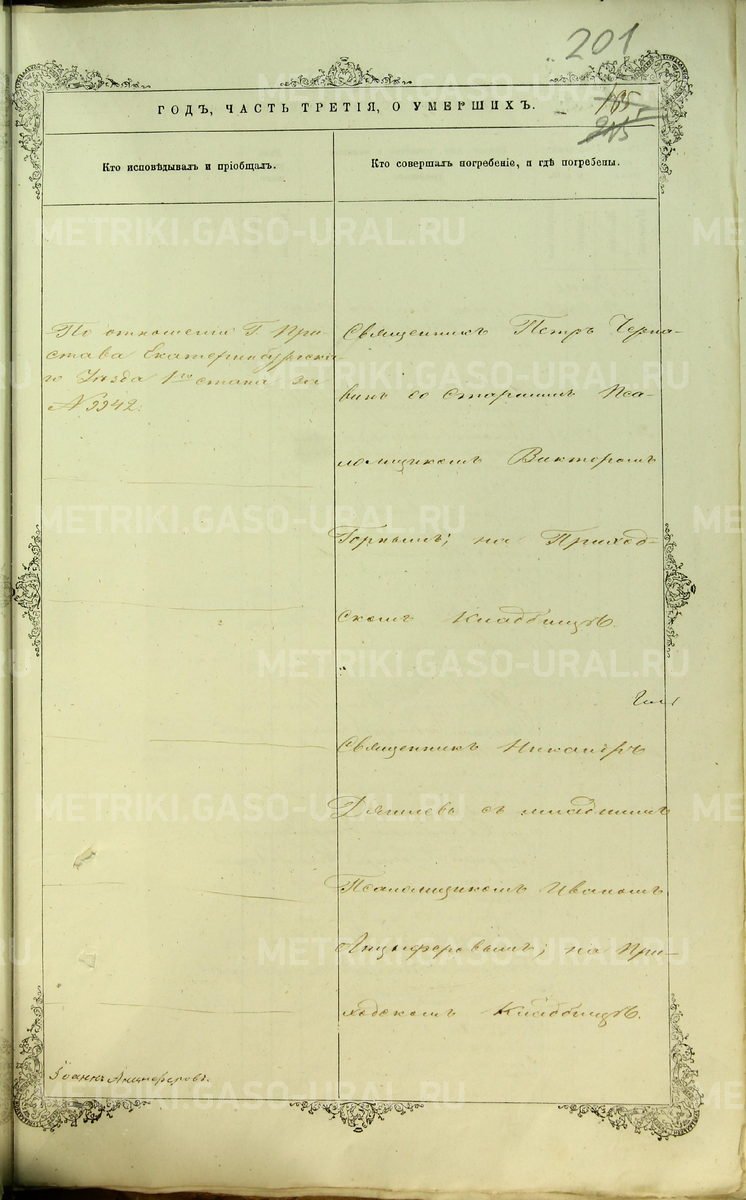 201
185
215
ГОДЪ, ЧАСТЬ ТРЕТІЯ, О УМЕРШИХЪ.
Кто исповѣдывалъ и пріобщалъ.
Кто совершалъ погребеніе, и гдѣ погребены.
По отношенію Г. При-
става Екатеринбургска-
го Уѣзда 1го стана за
№ 3342.
Священникъ Петръ Черна-
винъ со старшимъ Пса-
ломщикомъ Викторомъ
Горнымъ; на Приход-
скомъ Кладбищѣ.
Священникъ Никандръ
Дягилевъ съ младшимъ
Псаломщикомъ Иваномъ
Анциферовымъ; на При-
ходскомъ Кладбищѣ.
Іоаннъ Анциферовъ.
METRIKI.GASO-URAL.RU